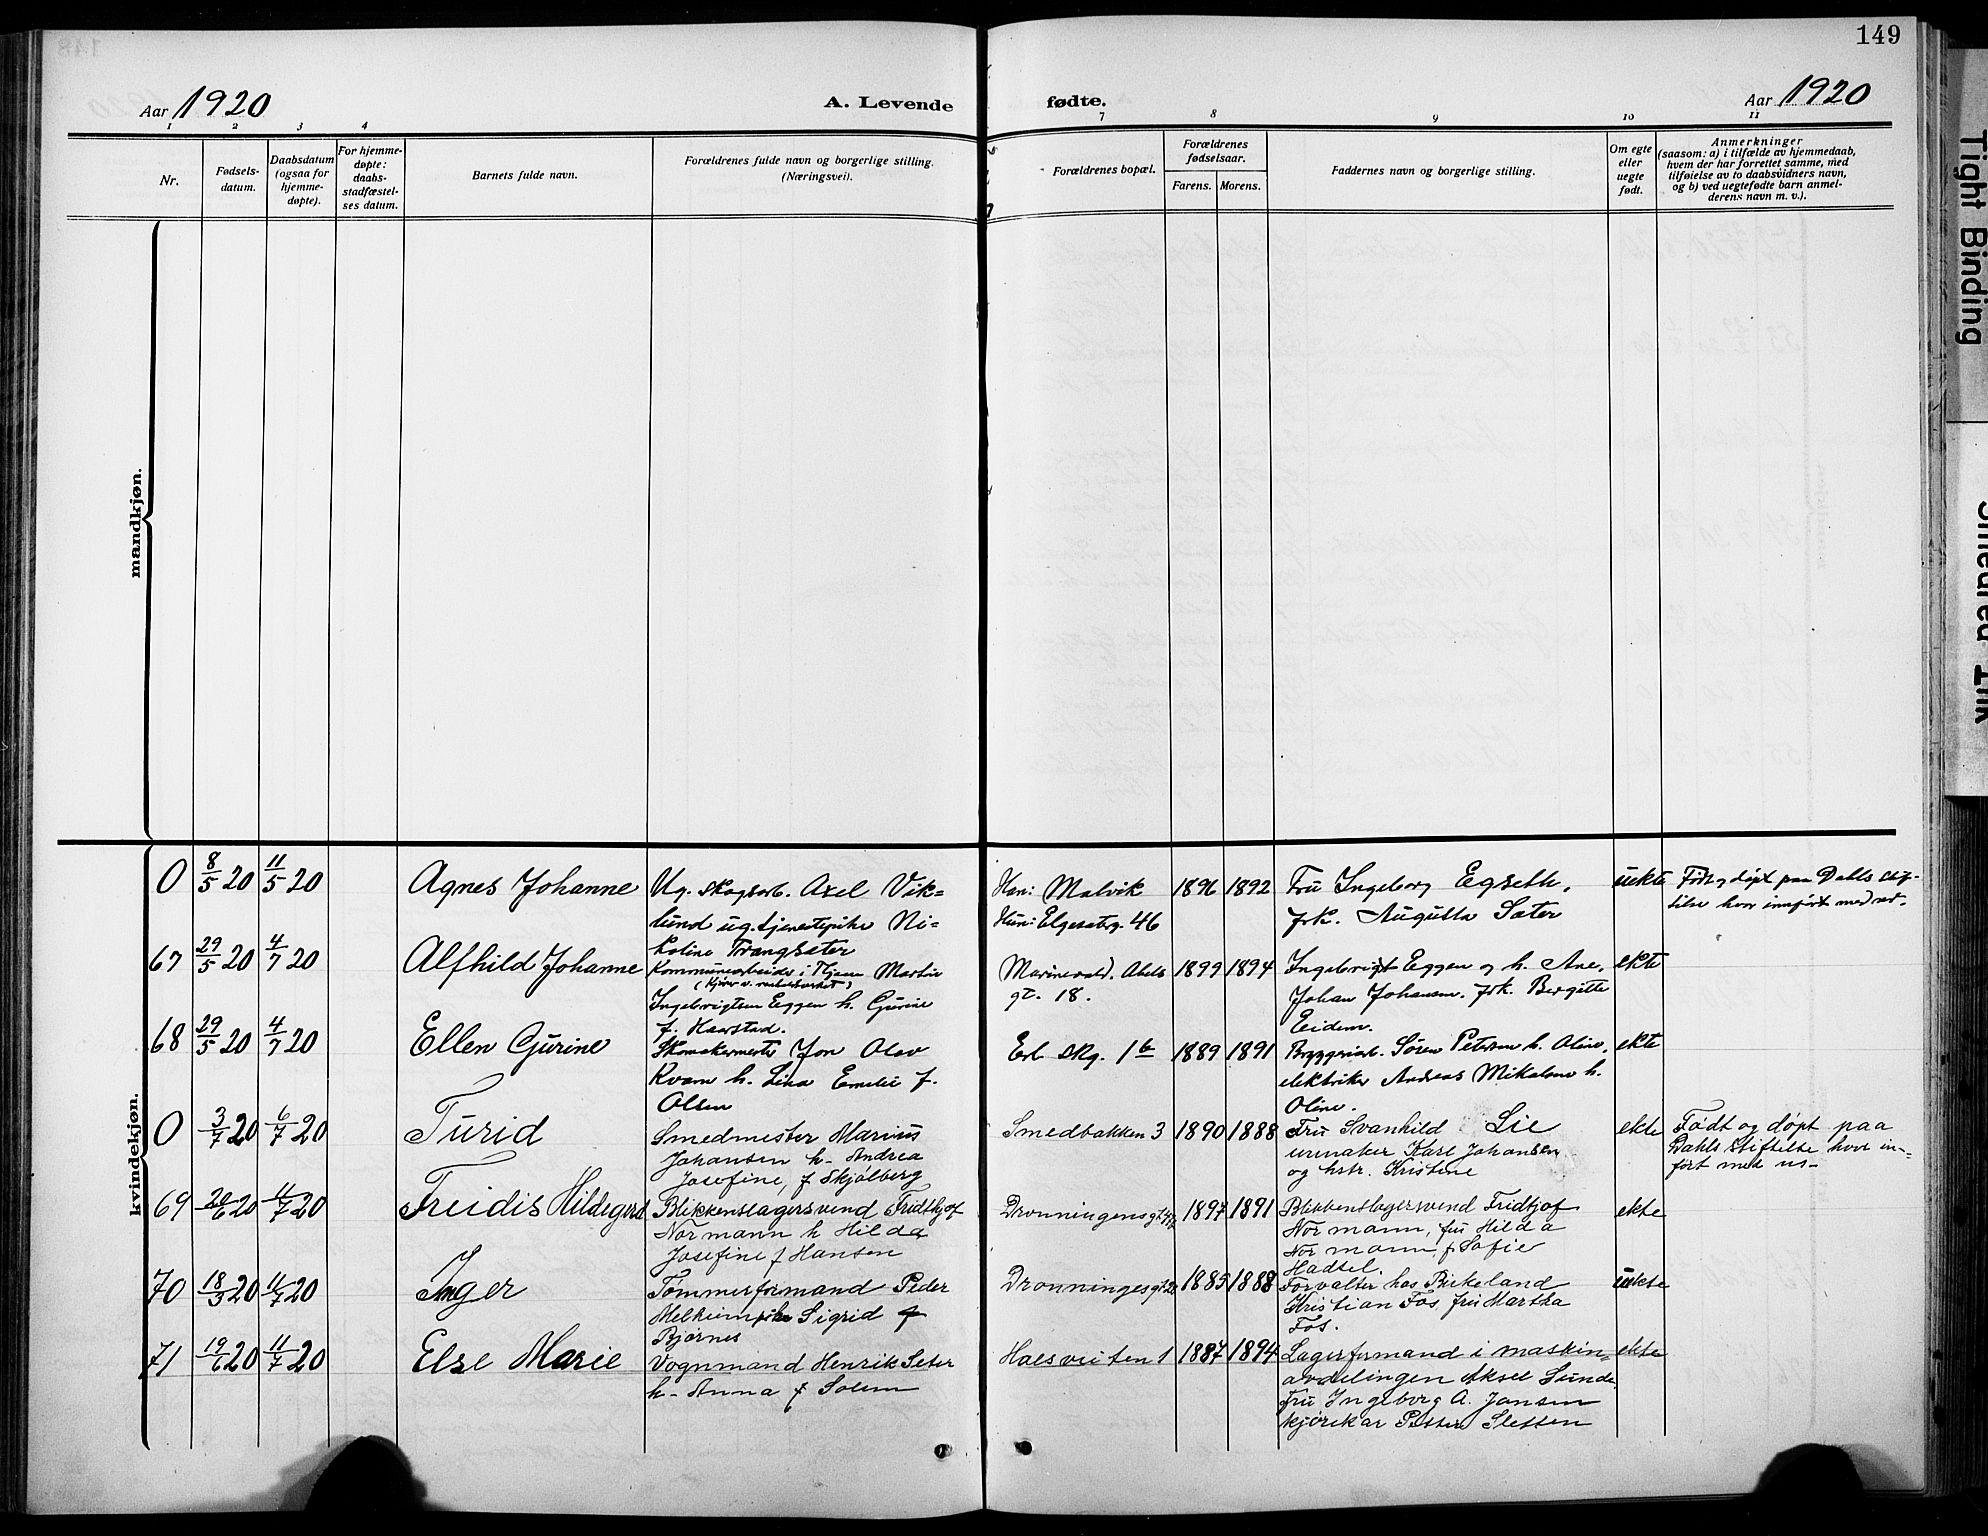 149
Aar 1920
A. Levende
fødte.
Aar 1920
1 2 3 4
7 8 9 10 11
Nr.
Fødsels-
datum.
Daabsdatum
(ogsaa for
hjemme-
døpte).
For hjemme-
døpte:
daabs-
stadfæstel-
ses datum.
Barnets fulde navn.
Forældrenes fulde navn og borgerlige stilling.
(Næringsvei).
Forældrenes bopæl.
Forældrenes
fødselsaar.
Farens. Morens.
Faddernes navn og borgerlige stilling.
Om egte
eller
uegte
født.
Anmerkninger
(saasom: a) i tilfælde av hjemmedaab,
hvem der har forrettet samme, med
tilføielse av to daabsvidners navn,
og b) ved uegtefødte barn anmel-
derens navn m. v.).
mandkjøn.
kvindekjøn.
0 8/5 20 11/5 20 Agnes Johanne
Ug. skogsarb. Axel Vik-
lund ug. tjenestepike Ni-
koline Trangsæter
Han: Malvik
Hun: Elgesetergt. 46
1896 1892
Fru Ingeborg Egseth,
frk. Augusta Sæter
uekte
Født og døpt paa Dahls stif-
telse hvor innført med nr.
67 29/5 20 4/7 20 Alfhild Johanne
Kommunearbeider i Thjem Martin
Ingebrigtsen Eggen h. Gurine
f. Haarstad.
Marinevold. Abels
gt. 18.
1899 1894
Ingebrigt Eggen og h. Ane,
Johan Johansen, frk. Bergitte
Eidem.
ekte
68 29/5 20 4/7 20 Ellen Gurine
Skomakermester Jon Olav
Kvam h. Lina Emelie f.
Olsen
Erl. Skg. 1b
1889 1891
Bryggeriarb. Søren Petersen h. Oline,
elektriker Andreas Mikalsen h.
Oline.
ekte
0 3/7 20 6/7 20 Turid
Smedmester Marius
Johansen h. Andrea
Josefine, f Skjølberg
Smedbakken 3
1890 1888
Fru Svanhild Lie
urmaker Karl Johansen
og hstr. Kristine
ekte
Født og døpt paa
Dahls stiftelse hvor in-
ført med nr-
69 20/6 20 11/7 20 Freidis Hildegerd
Blikkenslagersvend Fridthjof
Normann h Hilda
Josefine f Hansen
Dronningensgt
1897 1891
Blikkenslagersvend Fridtjof
Normann, fru Hilda
Normann, f Sofie
Hadsel.
ekte
70 18/3 20 11/7 20 Inger
Tømmerformand Peder
Melheim, pike Sigrid f
Bjørnes
Dronningesgt
1885 1888
Forvalter hos Birkeland
Kristian Fos, fru Martha
Fos.
uekte
71 19/6 20 11/7 20 Else Marie
Vognmand Henrik Seter
h- Anna f Solem
Halsveiten 1
1887 1894
Lagerformand i maskin-
avdelingen Aksel Sunde,
Fru Ingeborg A. Jansen
kjørekar Petter Sletten
ekte
Tight Binding
Smeared Ink